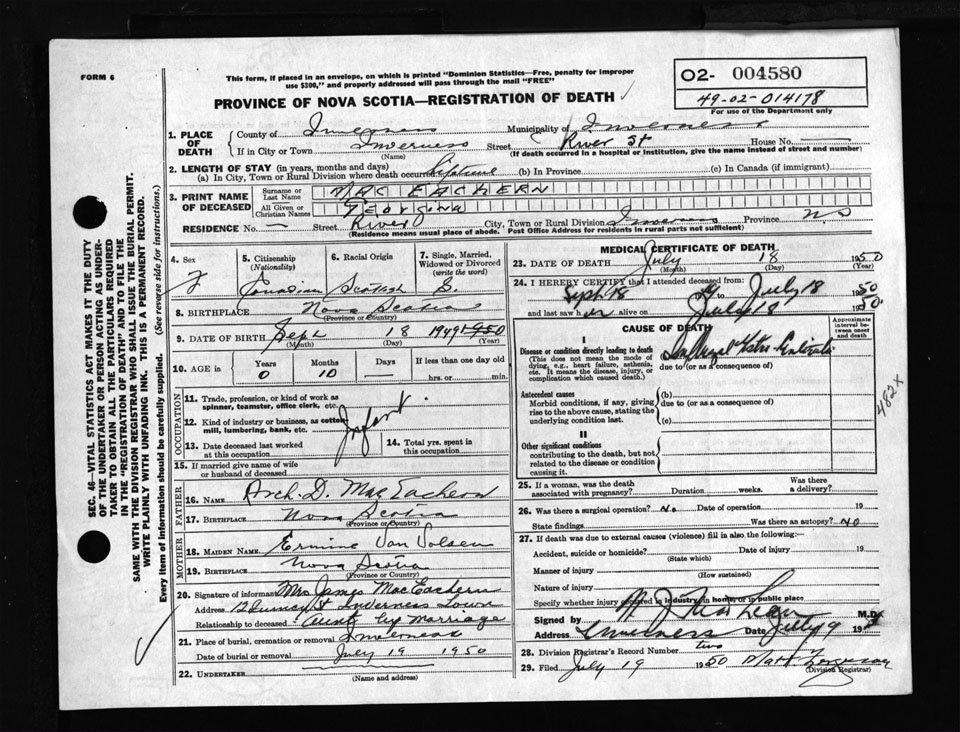 FORM 6
This form, if placed in an envelope, on which is printed "Dominion Statistics—Free, penalty for improper
use $300," and properly addressed will pass through the mail "FREE"
PROVINCE OF NOVA SCOTIA—REGISTRATION OF DEATH
O2- 004580
49-02-014178
For use of the Department only
1. PLACE OF DEATH
County of Inverness Municipality of Inverness
If in City or Town Inverness Street River St House No.
(Name) (If death occurred in a hospital or Institution, give the name instead of street and number)
2. LENGTH OF STAY (in years, months and days)
(a) In City, Town or Rural Division where death occurred Lifetime (b) in Province (c) in Canada (if immigrant)
3. PRINT NAME OF DECEASED
Surname or Last Name MAC EACHERN
All Given or Christian Names GEORGINA
RESIDENCE No. — Street River City, Town or Rural Division Inverness Province N.S
(Residence means usual place of abode. Post Office Address for residents in rural parts not sufficient)
4. Sex F
5. Citizenship (Nationality) Canadian
6. Racial Origin Scottish
7. Single, Married, Widowed or Divorced (write the word) S.
8. BIRTHPLACE Nova Scotia
(Province or Country)
9. DATE OF BIRTH Sep 18 1949 1950
(Month) (Day) (Year)
10. AGE in Years 0 Months 10 Days — If less than one day old
hrs. or min.
OCCUPATION
11. Trade, profession, or kind of work as
spinner, teamster, office clerk, etc.
12. Kind of industry or business, as cotton
mill, lumbering, bank, etc.
Infant
13. Date deceased last worked
at this occupation
14. Total yrs. spent in
this occupation
15. If married give name of wife
or husband of deceased
FATHER
16. NAME Arch. D. MacEachern
17. BIRTHPLACE Nova Scotia
(Province or Country)
MOTHER
18. MAIDEN NAME Ermine Van
19. BIRTHPLACE Nova Scotia
(Province or Country)
20. Signature of informant Mrs James MacEachern
Address St Inverness Town
Relationship to deceased Aunt by Marriage
21. Place of burial, cremation or removal Inverness
Date of burial or removal July 19 1950
22. UNDERTAKER
(Name and address)
MEDICAL CERTIFICATE OF DEATH
23. DATE OF DEATH July 18 1950
(Month) (Day) (Year)
24. I HEREBY CERTIFY that I attended deceased from:
Sept 18 to July 18 1950
and last saw her alive on July 18 1950
CAUSE OF DEATH
Approximate interval between onset and death
I
Disease or condition directly leading to death
(This does not mean the mode of
dying, e.g., heart failure, asthenia,
etc. It means the disease, injury, or
complication which caused death.)
due to (or as a consequence of)
Antecedent causes
Morbid conditions, if any, giving
rise to the above cause, stating the
underlying condition last.
(b)
due to (or as a consequence of)
(c)
II
Other significant conditions
contributing to the death, but not
related to the disease or condition
causing it.
482X
25. If a woman, was the death
associated with pregnancy? Duration weeks. Was there
a delivery?
26. Was there a surgical operation? No Date of operation 19
State findings Was there an autopsy? NO
27. If death was due to external causes (violence) fill in also the following:—
Accident, suicide or homicide? Date of injury 19
(State which)
Manner of injury
(How sustained)
Nature of injury
Specify whether injury occurred in industry, in home, or in public place
Signed by M.D.
Address Inverness Date July 19
28. Division Registrar's Record Number two
29. Filed July 19 1950 Matt
(Division Registrar)
SEC. 46—VITAL STATISTICS ACT MAKES IT THE DUTY
OF THE UNDERTAKER OR PERSON ACTING AS UNDER-
TAKER TO OBTAIN ALL THE PARTICULARS REQUIRED
IN THE "REGISTRATION OF DEATH" AND TO FILE THE
SAME WITH THE DIVISION REGISTRAR WHO SHALL ISSUE THE BURIAL PERMIT.
WRITE PLAINLY WITH UNFADING INK. THIS IS A PERMANENT RECORD.
Every item of information should be carefully supplied. (See reverse side for instructions.)